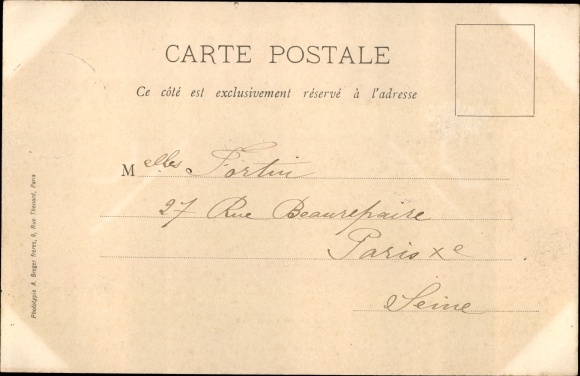 CARTE POSTALE
Ce côté est exclusivement réservé à l'adresse
Melles Fortin
27 Rue Beaurepaire
Paris Xe
Seine
Phototypie A. Breger frères, 9, Rue Thenard, Paris